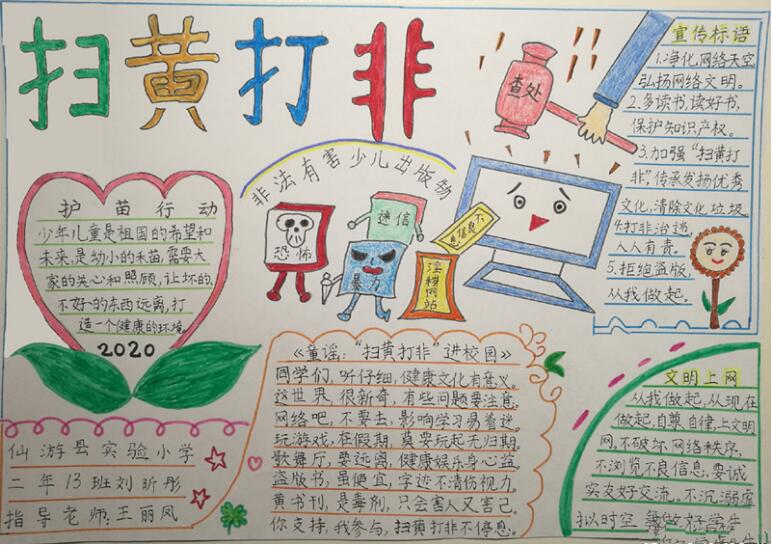 扫黄打非
宣传标语
1.净化网络天空
弘扬网络文明。
2.多读书,读好书,
保护知识产权。
3.加强“扫黄打
非”,传承发扬优秀
文化,清除文化垃圾。
4.打非治违,
人人有责。
5.拒绝盗版,
从我做起。
查处
非法有害少儿出版物
恐怖
迷信
暴力
不
信息
淫秽
网站
护苗行动
少年儿童是祖国的希望和
未来,是幼小的禾苗,需要大
家的关心和照顾,让坏的、
不好的东西远离,打
造一个健康的环境。
2020
仙游县实验小学
二年13班刘昕彤
指导老师:王丽凤
《童谣:“扫黄打非”进校园》
同学们,听仔细,健康文化有意义。
这世界,很新奇,有些问题要注意。
网络吧,不要去,影响学习易着迷。
玩游戏,在假期,莫要玩起无归期。
歌舞厅,要远离,健康娱乐身心益。
盗版书,虽便宜,字迹不清伤视力。
黄书刊,是毒剂,只会害人又害己。
你支持,我参与,扫黄打非不停息。
文明上网
从我做起,从现在
做起,自尊自律,上文明
网,不破坏网络秩序,
不浏览不良信息,要诚
实友好交流。不沉溺虚
拟时空